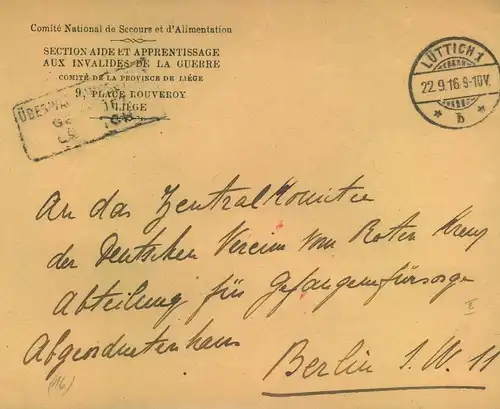 Comité National de Secours et d'Alimentation
SECTION AIDE ET APPRENTISSAGE
AUX INVALIDES DE LA GUERRE
COMITÉ DE LA PROVINCE DE LIÉGE
9, PLACE ROUVEROY
LIÉGE
LÜTTICH 1
22.9.16 9-10V.
* b *
An das Zentralkomitee
der Deutschen Vereine vom Roten Kreuz
Abteilung für Gefangenenfürsorge
Abgeordnetenhaus
Berlin S.W. 11
(16)